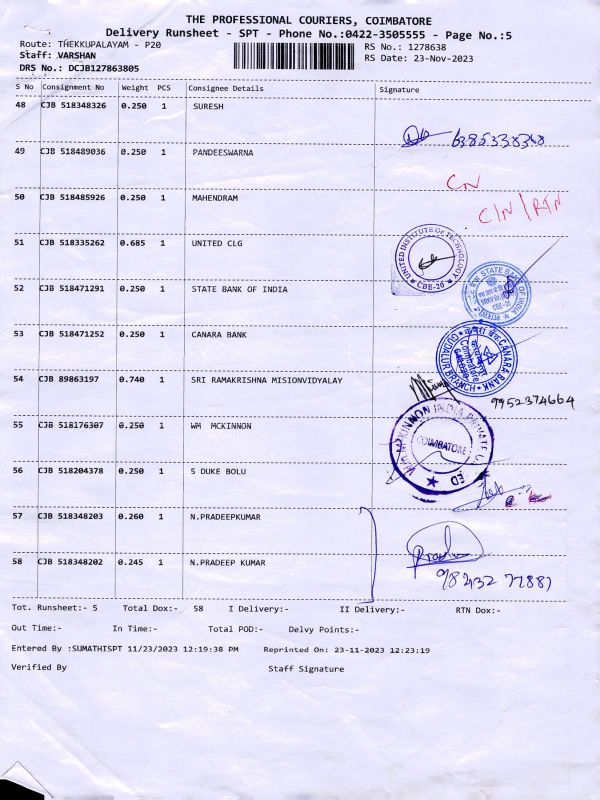 THE PROFESSIONAL COURIERS, COIMBATORE
Delivery Runsheet - SPT - Phone No.:0422-3505555 - Page No.:5
Route: THEKKUPALAYAM - P20
RS No.: 1278638
Staff: VARSHAN
RS Date: 23-Nov-2023
DRS No.: DCJB127863805
S No Consignment No Weight PCS Consignee Details Signature
48 CJB 518348326 0.250 1 SURESH
49 CJB 518489036 0.250 1 PANDEESWARNA
CN
50 CJB 518485926 0.250 1 MAHENDRAM
C/N/RTN
51 CJB 518335262 0.685 1 UNITED CLG
UNITED INSTITUTE OF TECHNOLOGY
CBE-20
52 CJB 518471291 0.250 1 STATE BANK OF INDIA
STATE BANK OF INDIA
53 CJB 518471252 0.250 1 CANARA BANK
CANARA BANK
Coimbatore
GUDALUR BRANCH
54 CJB 89863197 0.740 1 SRI RAMAKRISHNA MISIONVIDYALAY
9952374664
55 CJB 518176307 0.250 1 WM MCKINNON
MCKINNON INDIA PRIVATE
COIMBATORE
56 CJB 518204378 0.250 1 5 DUKE BOLU
57 CJB 518348203 0.260 1 N.PRADEEPKUMAR
58 CJB 518348202 0.245 1 N.PRADEEP KUMAR
Tot. Runsheet:- 5 Total Dox:- 58 I Delivery:- II Delivery:- RTN Dox:-
Out Time:- In Time:- Total POD:- Delvy Points:-
Entered By :SUMATHISPT 11/23/2023 12:19:38 PM Reprinted On: 23-11-2023 12:23:19
Verified By Staff Signature